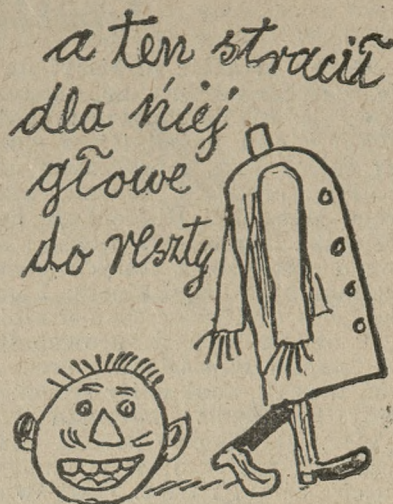 a ten stracił
dla niej
głowe
do reszty